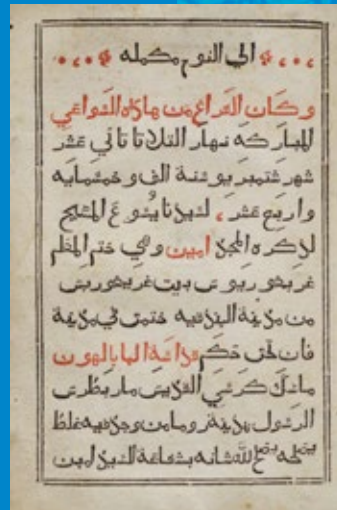 الي النوم مكمله
وكان الفراغ من هاذه السواعي
المباركه نهار التلاتا تاني عشر
شهر شتمبر يو سنة الف وخمسمايه
واربع عشر ، لسيدنا يسوع المسيح
لذكره المجد امين وهي ختم المعلم
غريغوريوس بيت غريغوريس
من مدينة البندقيه ختمت في مدينة
فان تحت حكم قداسة البابا لهون
ماسك كرسي القديس مار بطرس
الرسول بمدينة روما من وجد فيه غلط
يصلحه يصلح الله شانه بشفاعة السيد امين